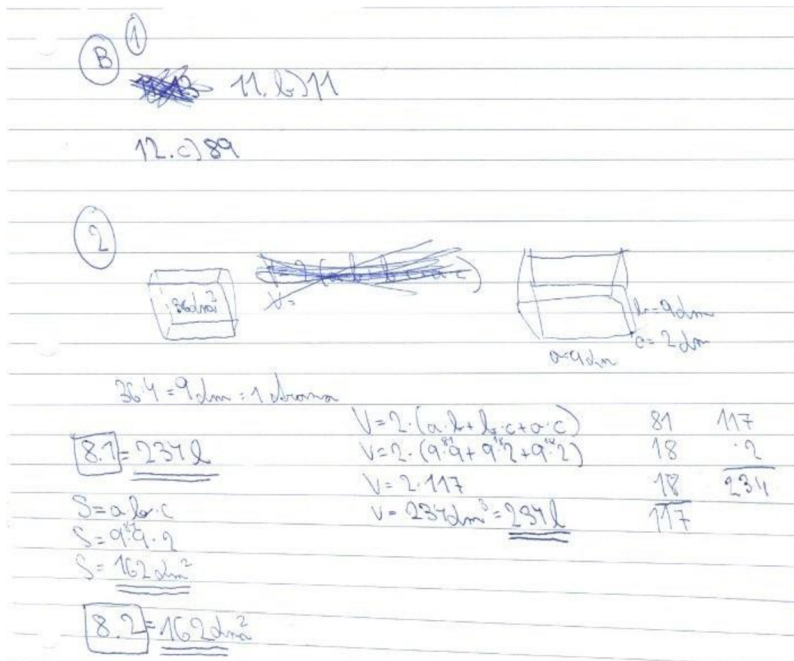 B 1
11. b) 11
12. c) 89
2
36dm²
V=
b=9dm
c=2dm
a=9dm
36:4=9dm=1 strana
8.1=234l
V=2·(a·b+b·c+a·c)
V=2·(9·9+9·2+9·2)
V=2·117
V=234dm³=234l
81
18
18
117
117
·2
234
S=a·b·c
S=9·9·2
S=162dm²
8.2=162dm²